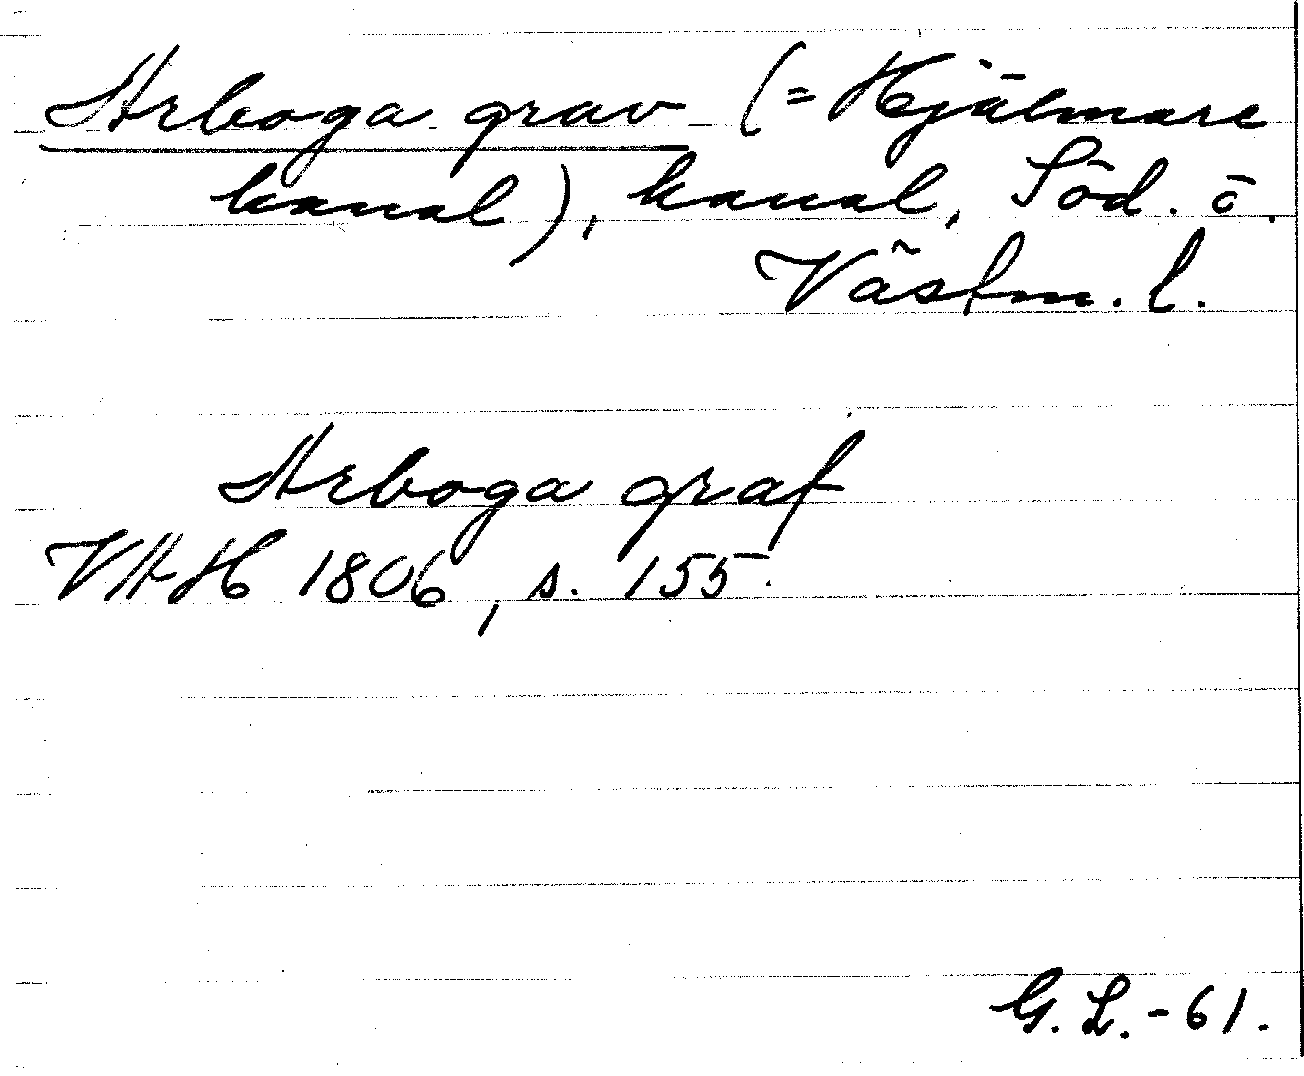 Arboga grav (= Hjälmare
kanal), kanal, Söd. o.
Västm. l.
Arboga graf
VAH 1806, s. 155.
G. L. - 61.